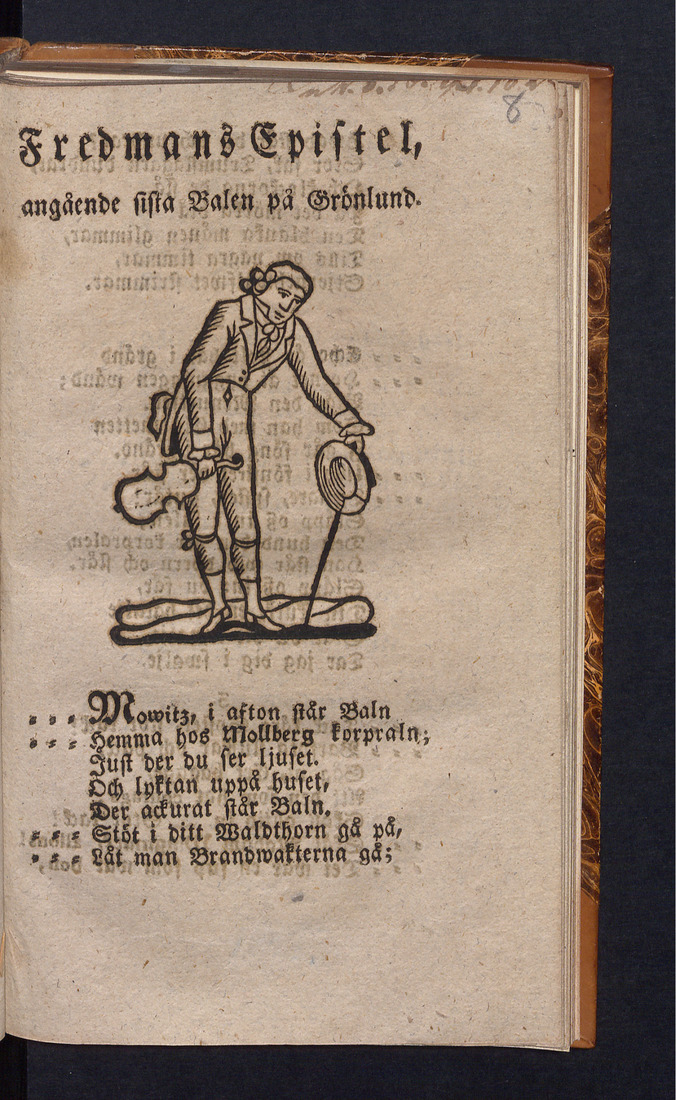 8
Fredmans Epistel,
angående sista Balen på Grönlund.
Mowitz, i afton står Baln
Hemma hos Mollberg korpraln;
Just der du ser ljuset.
Och lyktan uppå huset,
Der ackurat står Baln.
Stöt i ditt Waldthorn gå på,
Låt man Brandwakterna gå;